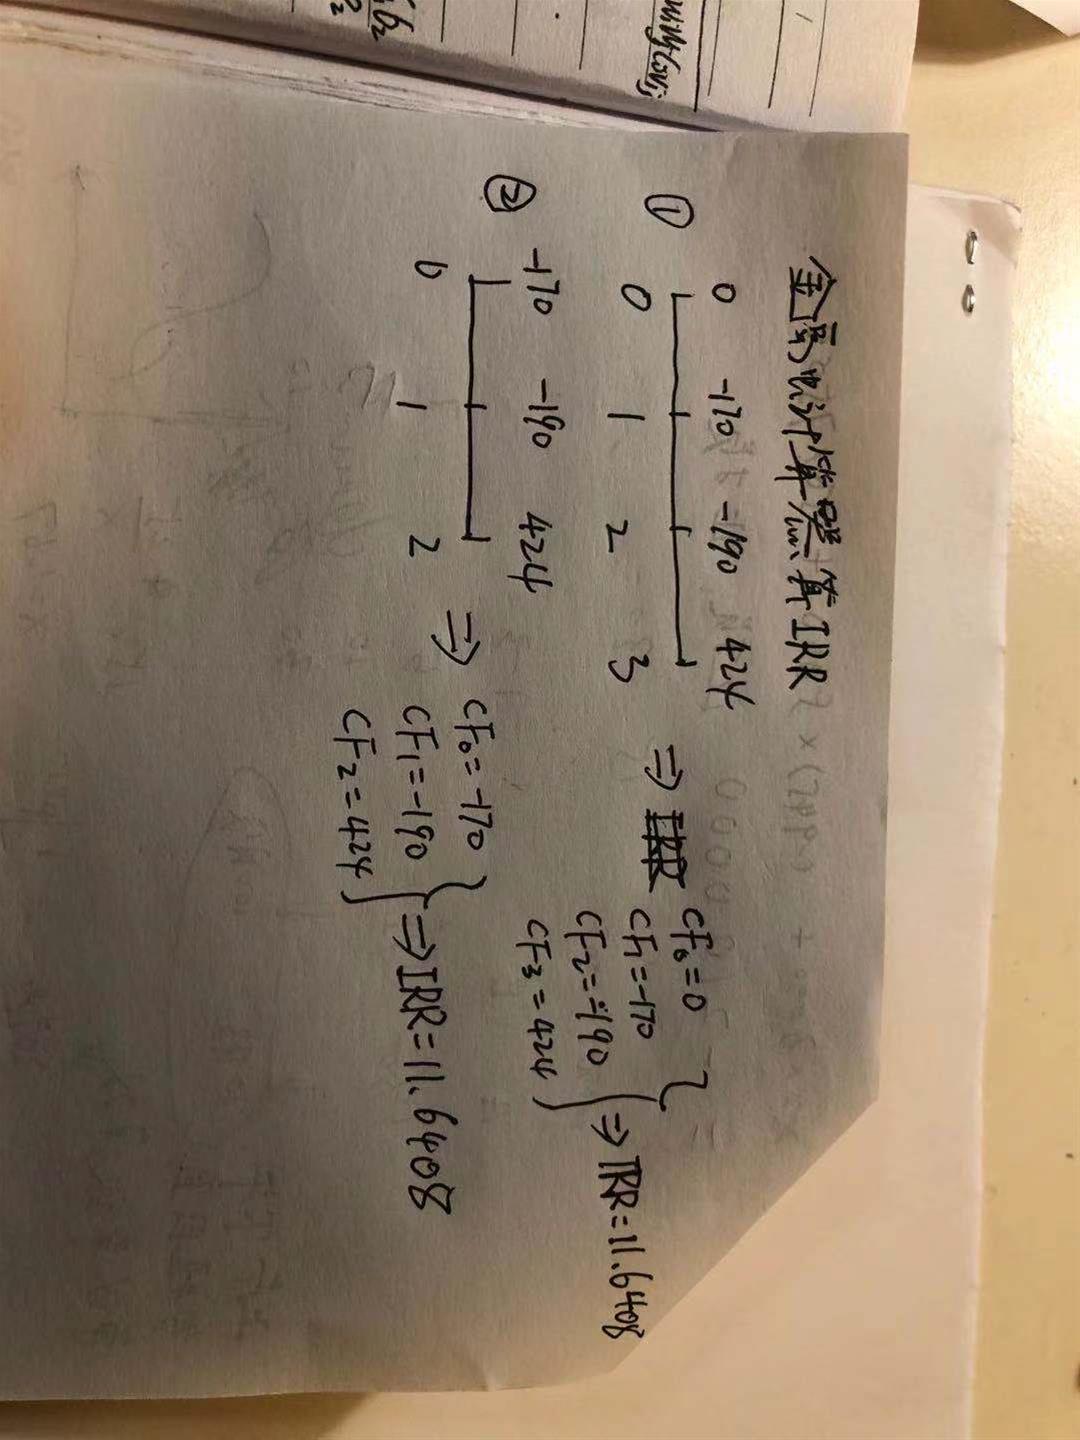 金融计算器算IRR
① 0 -170 -190 424
0 1 2 3
⇒ CF0=0
CF1=-170
CF2=-190
CF3=424
⇒ IRR=11.6408
② -170 -190 424
0 1 2
⇒ CF0=-170
CF1=-190
CF2=424
⇒ IRR=11.6408